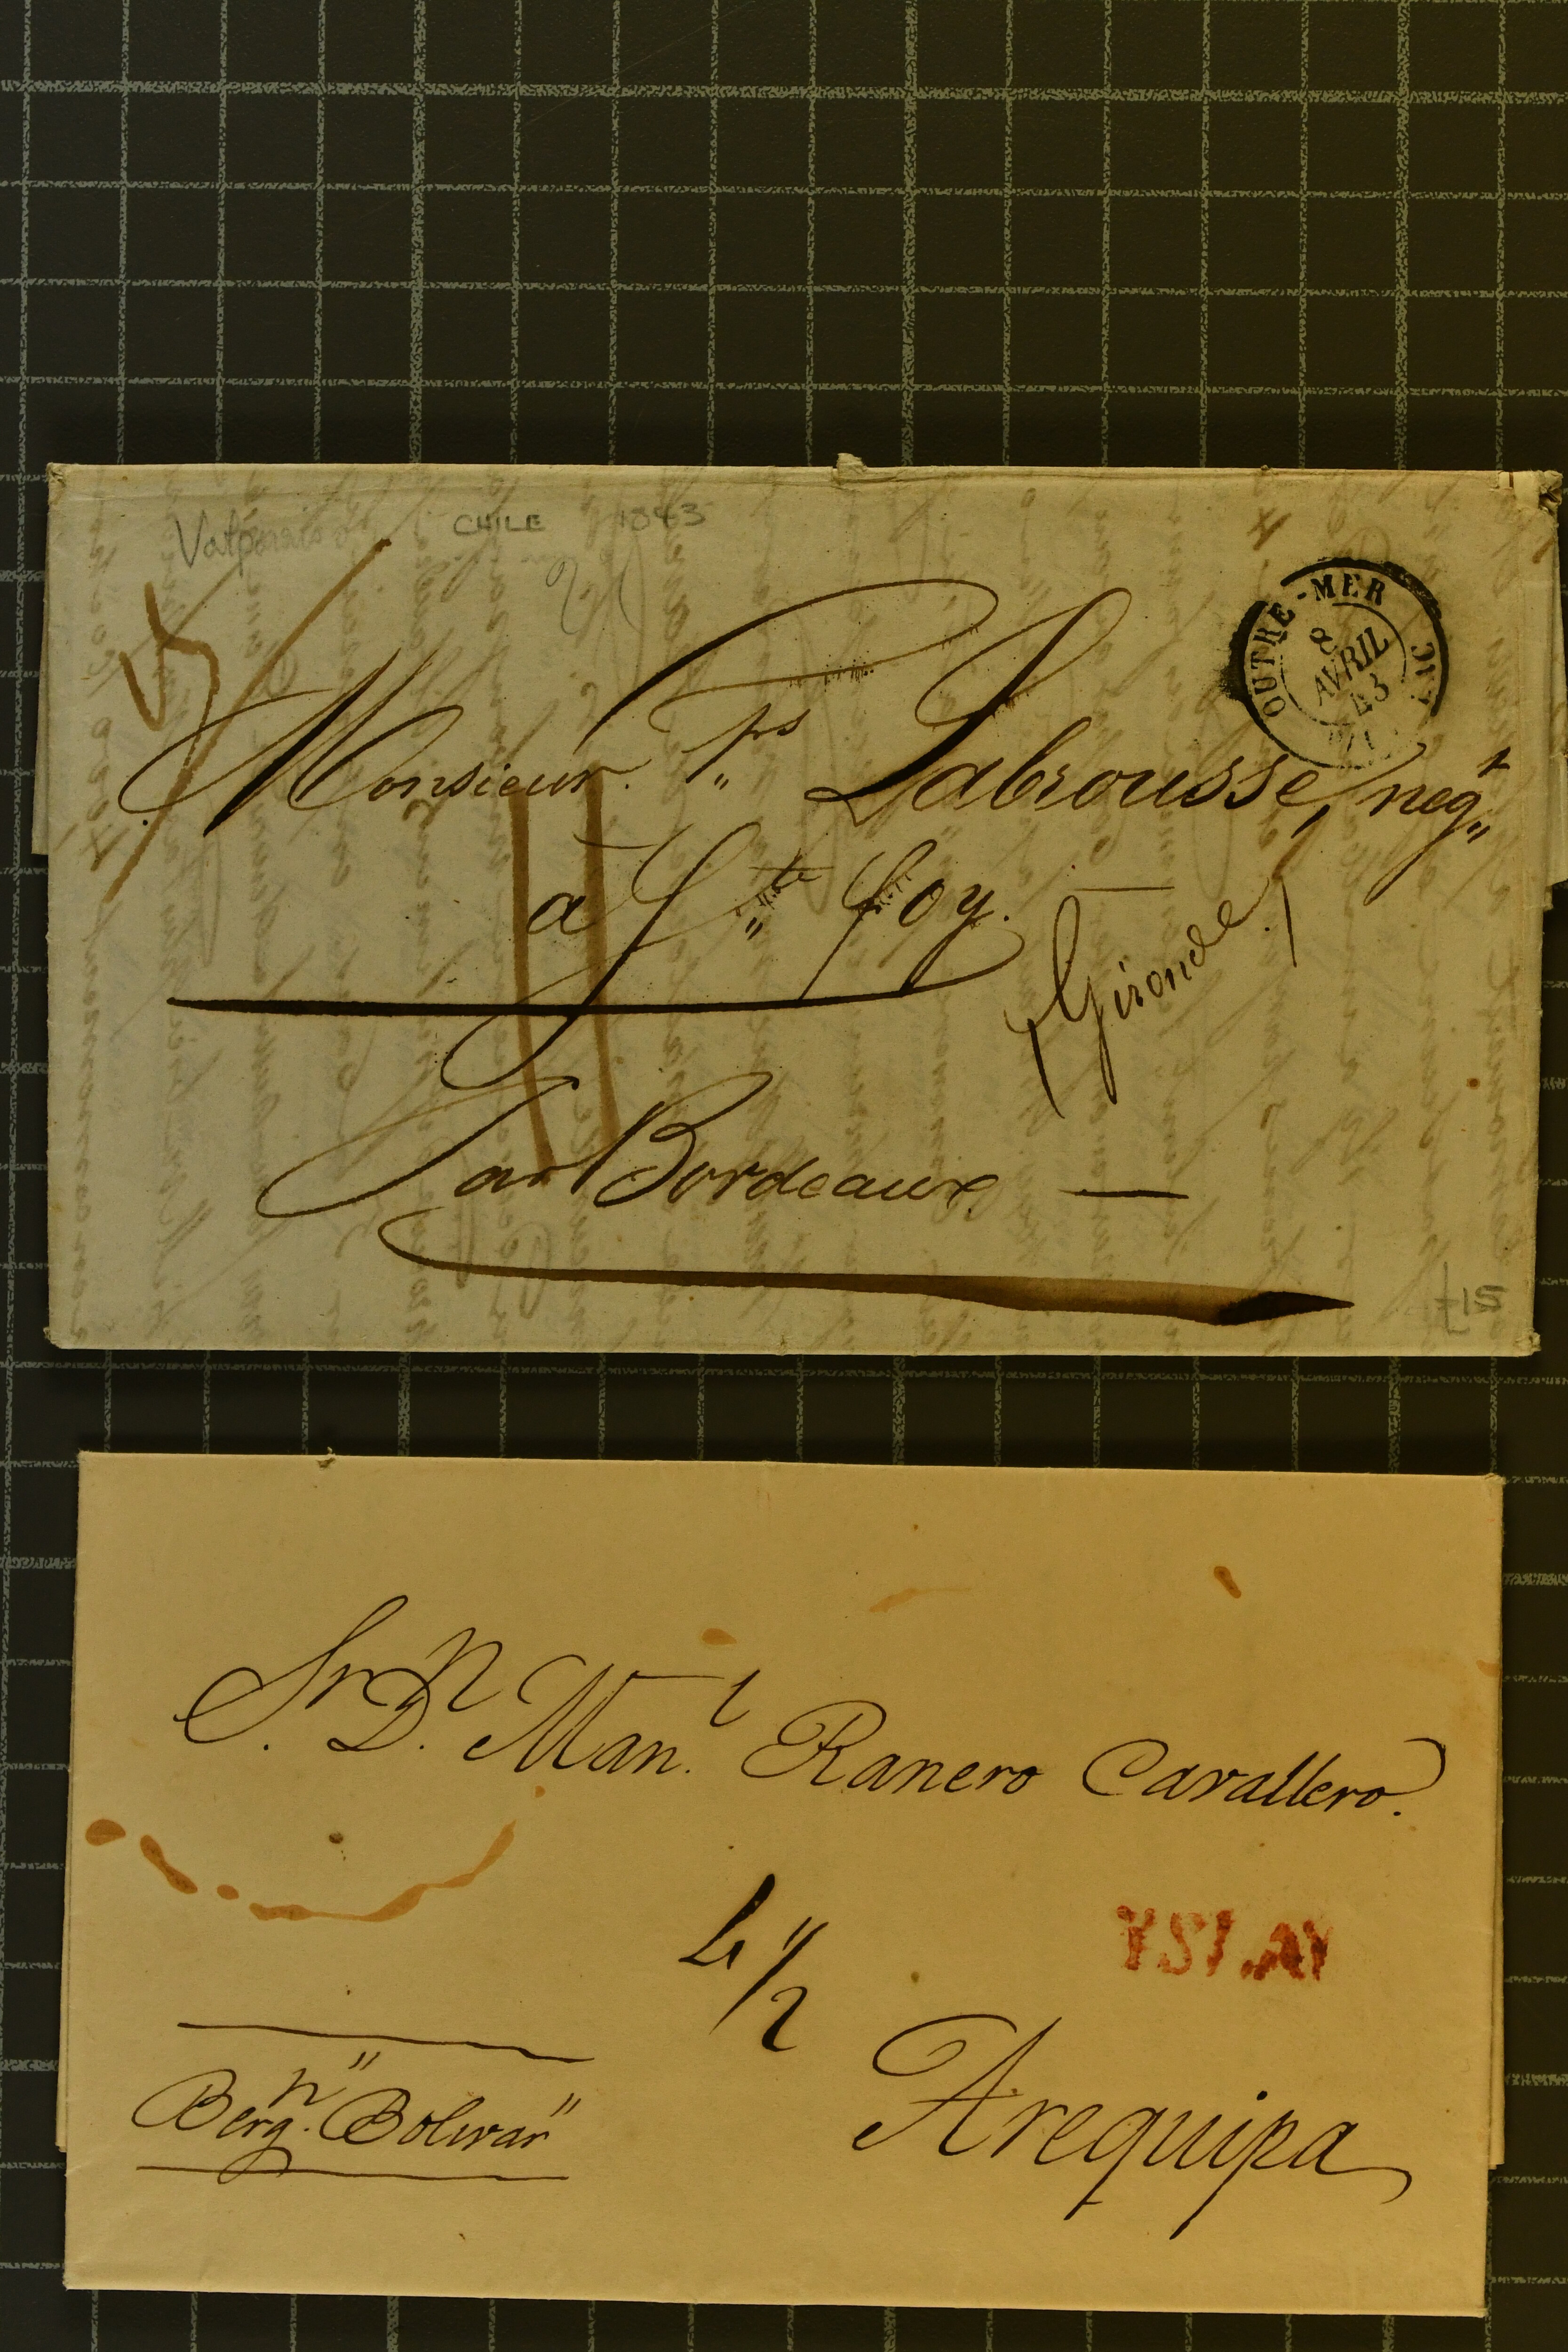 Valparaiso CHILE 1843
OUTRE-MER
8
AVRIL
43
Monsieur Ps Labrousse, negt
à Ste foy.
(Gironde)
Par Bordeaux
£15
Sr. Dn. Manl. Ranero Cavallero.
4 1/2
Bergn. "Bolivar"
Arequipa